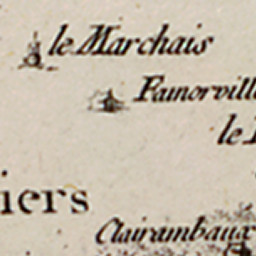 le Marchais
Famorvill
le
iers
Clairambaux